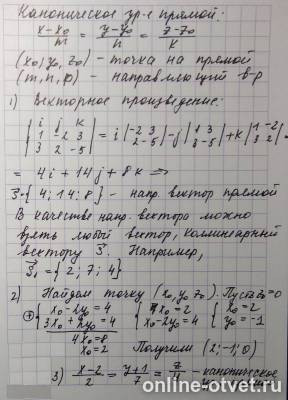 Каноническое ур-е прямой:
x-x₀/m = y-y₀/n = z-z₀/k
(x₀, y₀, z₀) - точка на прямой
(m, n, p) - направляющий в-р
1) Векторное произведение:
|i j k; 1 -2 3; 3 2 -5| = i |-2 3; 2 -5| - j |1 3; 3 -5| + k |1 -2; 3 2| =
= 4i + 14j + 8k ⇒
S = {4; 14; 8} - напр. вектор прямой
В качестве напр. вектора можно
взять любой вектор, коллинеарный
вектору S. Например,
S₁ = {2; 7; 4}
2) Найдем точку (x₀, y₀, z₀). Пусть z₀=0
+ {x₀-2y₀=4; 3x₀+2y₀=4 {x₀=2; x₀-2y₀=4 {x₀=2; y₀=-1
4x₀=8
x₀=2 Получили (2; -1; 0)
3) x-2/2 = y+1/7 = z/4 - каноническое
online-otvet.ru